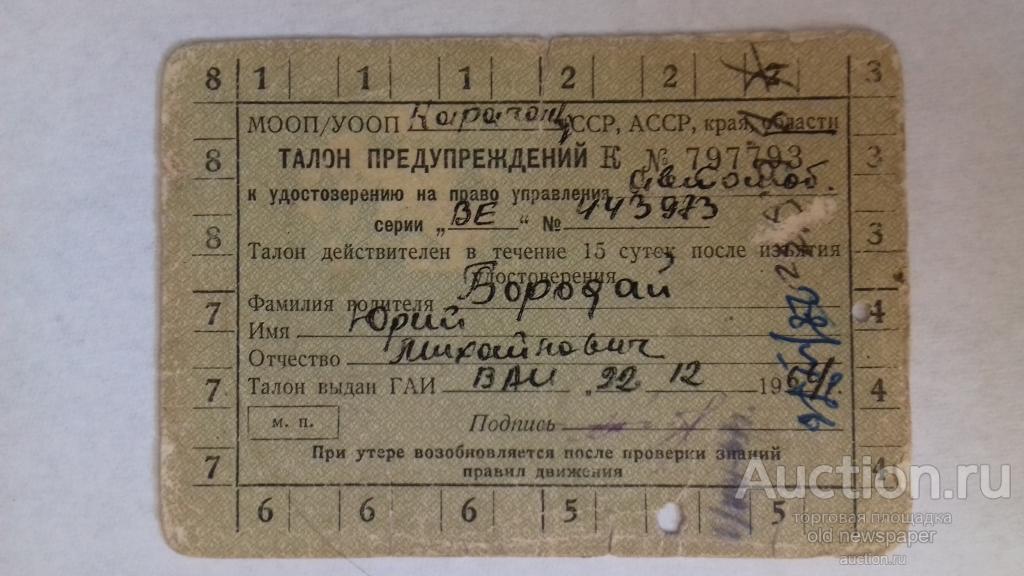 8 1 1 1 2 2 3
МООП/УООП ССР, АССР, края, области
8 ТАЛОН ПРЕДУПРЕЖДЕНИЙ Е № 797793 3
к удостоверению на право управления Автомоб.
серии „ВЕ“ № 443973
8 3
Талон действителен в течение 15 суток после изъятия
удостоверения
Фамилия водителя Бородай
7 4
Имя Юрий
Отчество Михайлович
7 Талон выдан ГАИ ВАИ „22 12 1964 г. 4
м. п. Подпись
При утере возобновляется после проверки знаний
7 правил движения 4
6 6 6 5 5
Auction.ru
торговая площадка
old newspaper
auction.ru